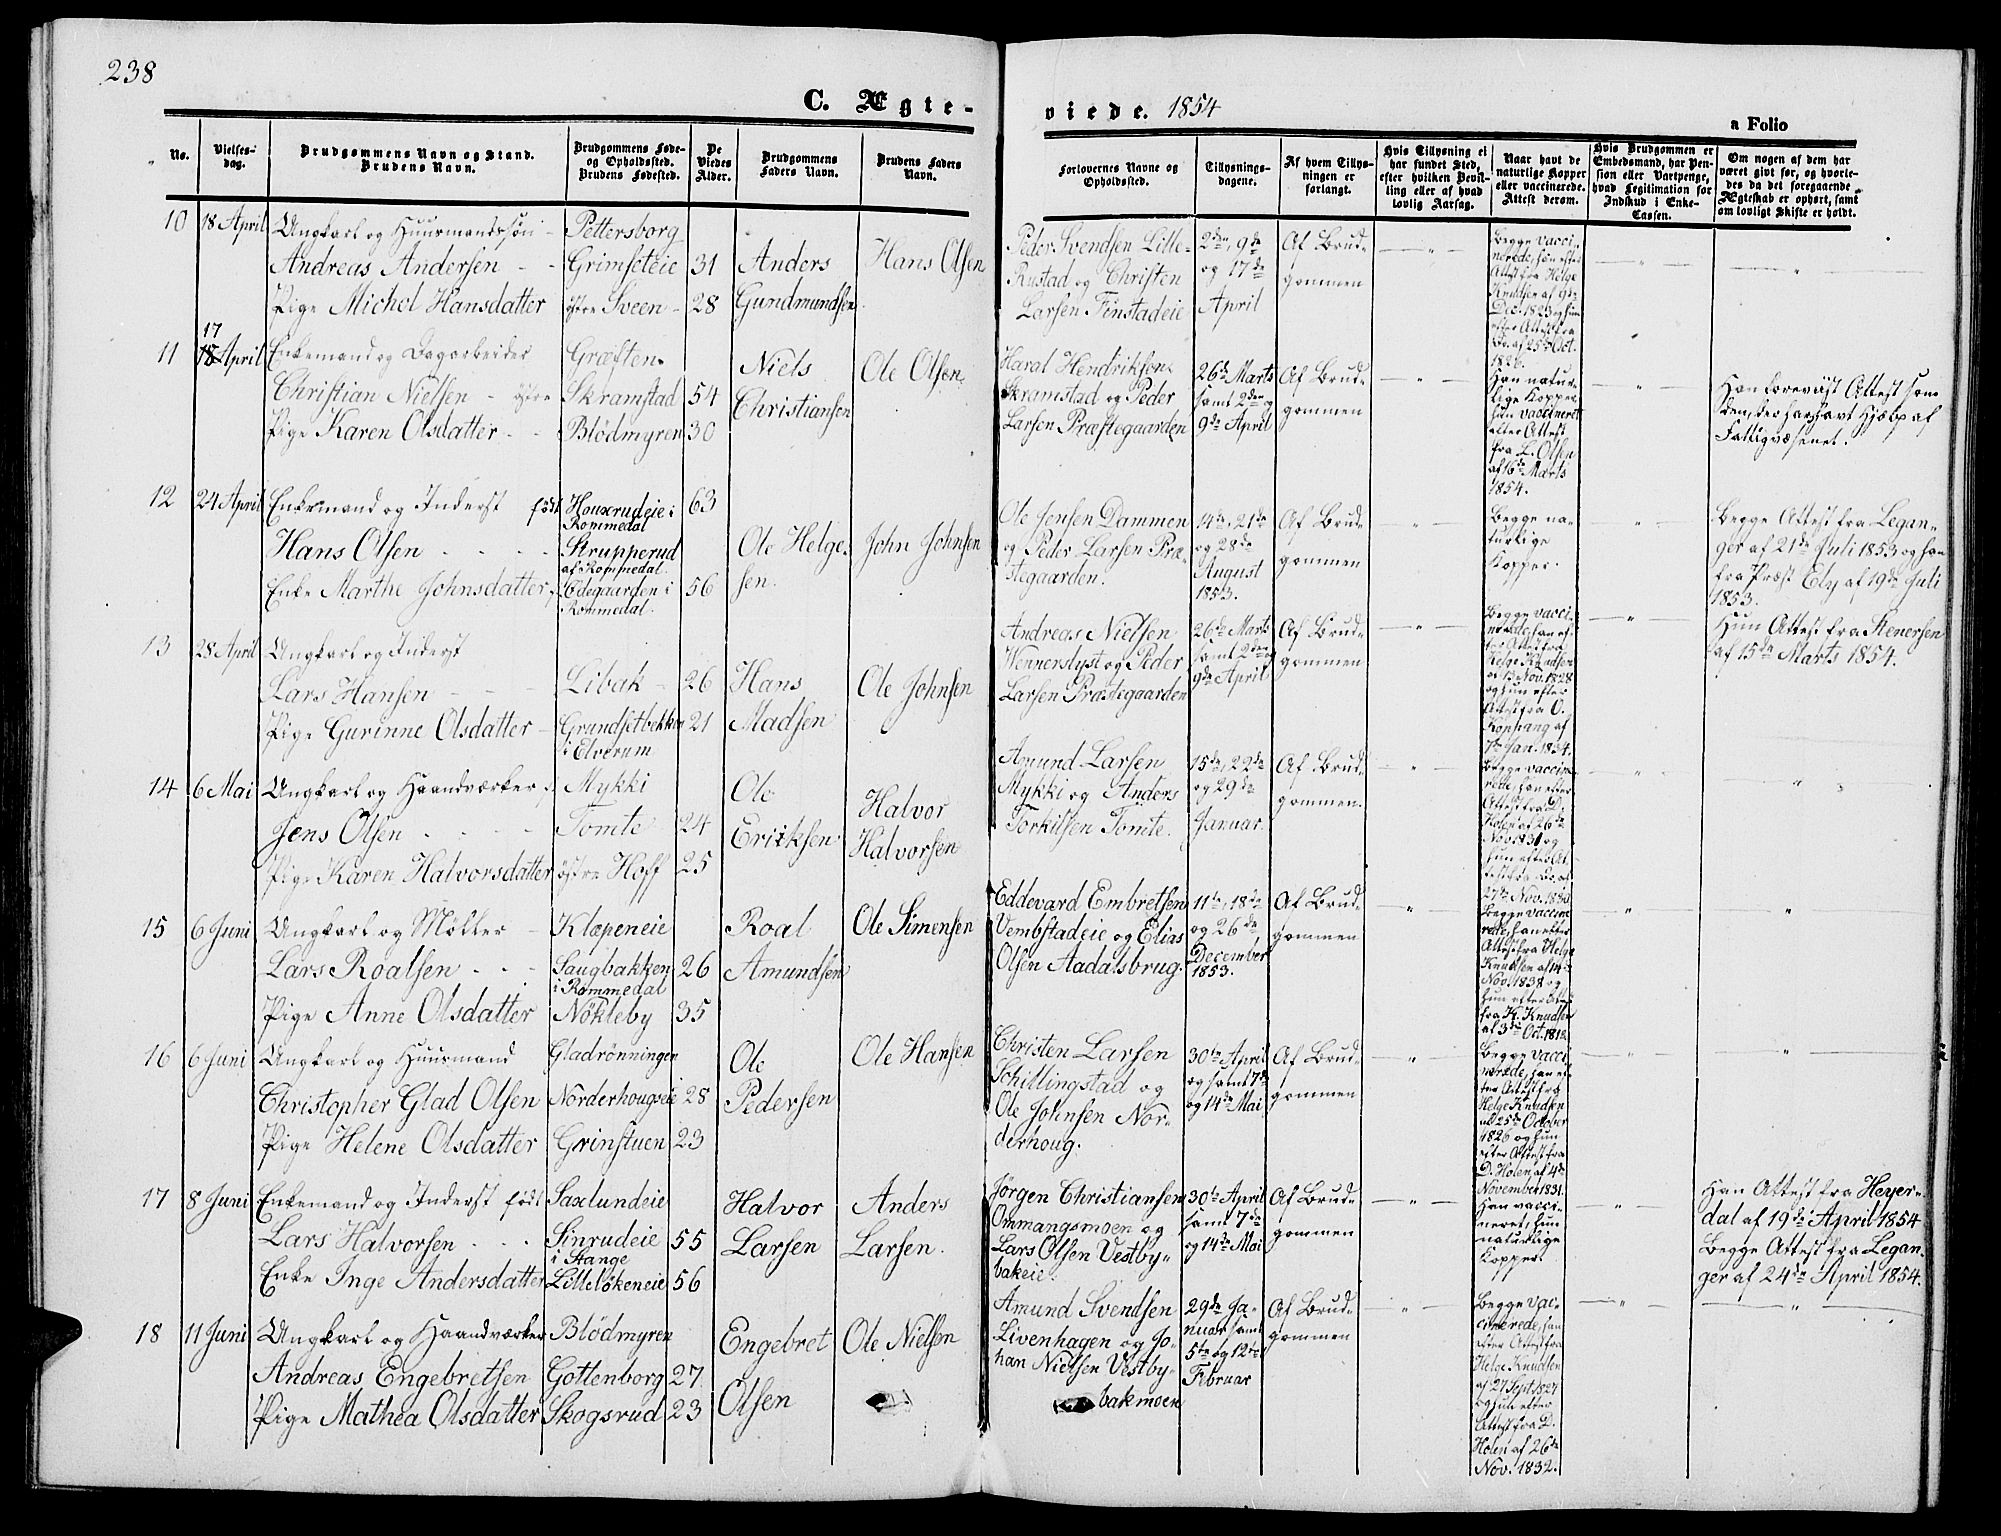 238
C. Ægte-
viede. 1854
a Folio
No.
Vielses-
dag.
Brudgommens Navn og Stand.
Brudens Navn.
Brudgommens Føde-
og Opholdssted.
Brudens Fødested.
De
Viedes
Alder.
Brudgommens
Faders Navn.
Brudens Faders
Navn.
Forlovernes Navne og
Opholdssted.
Tillysnings-
dagene.
Af hvem Tillys-
ningen er
forlangt.
Hvis Tillysning ei
har fundet Sted,
efter hvilken Bevil-
ling eller af hvad
lovlig Aarsag.
Naar havt de
naturlige Kopper
eller vaccinerede.
Attest derom.
Hvis Brudgommen er
Embedsmand, har Pen-
sion eller Vartpenge,
hvad Legitimation for
Indskud i Enke-
Cassen.
Om nogen af dem har
været givt før, og hvorle-
des da det foregaaende
Ægteskab er ophørt, samt
om lovligt Skifte er holdt.
10 18 April
Ungkarl og Huusmandssøn
Andreas Andersen
Pige Michel Hansdatter
Pettersborg
Grimseteie
østre Sveen
31
28
Anders
Gundmundsen
Hans Olsen
Peder Svendsen Lille-
Rustad og Christen
Larsen Finstadeie
2den, 9de
og 17de
April
Af Brud-
gommen
Begge vacci-
nerede, han efter
Attest fra Helge
Knudsen af 9de
Dec. 1823 og hun
efter Attest fra
Do. af 25de Oct.
1826.
11 17
18 April
Enkemand og Dagarbeider
Christian Nielsen - østre
Pige Karen Olsdatter
Græsten
Skramstad
Blødmyren
54
30
Niels
Christiansen
Ole Olsen
Haral Hendriksen
Skramstad og Peder
Larsen Præstegaarden
26de Marts
samt 2den og
9de April
Af Brud-
gommen
Han natur-
lige Kopper,
hun vaccineret
efter Attest
fra L. Olsen
af 16de Marts
1854.
Han foreviist Attest som
den, der har havt Hjælp af
Fattigvæsenet.
12 24 April
Enkemand og Inderst født
Hans Olsen
Enke Marthe Johnsdatter f.
Houxrudeie i
Rommedal
Strupperud
af Rommedal
Ødegaarden i
Rommedal.
63
56
Ole Helge-
sen.
John Johnsen
Ole Jensen Dammen
og Peder Larsen Præ-
stegaarden.
14de, 21de
og 28de
August
1853.
Af Brud-
gommen
Begge na-
turlige
Kopper.
Begge Attest fra Legan-
ger af 21de Juli 1853 og han
fra Præst Ely af 19de Juli
1853.
13 28 April
Ungkarl og Inderst
Lars Hansen
Pige Gurinne Olsdatter
Libak
Grundsetbekken
i Elverum
26
21
Hans
Madsen
Ole Johnsen
Andreas Nielsen
Wennerslyst og Peder
Larsen Præstegaarden
26de Marts
samt 2den og
9de April
Af Brud-
gommen
Begge vacci-
nerede, han ef-
ter Attest fra
Helge Knudsen
af 13 Nov. 1828
og hun efter
Attest fra O.
Kophang af
7de Jan. 1834.
Hun Attest fra Stenersen
af 15de Marts 1854.
14 6 Mai
Ungkarl og Haandværker f.
Jens Olsen
Pige Karen Halvorsdatter
Mykki
Tomte
østre Hoff
24
25
Ole
Eriksen
Halvor
Halvorsen
Amund Larsen
Mykki og Anders
Torkilsen Tomte.
15de, 22de
og 29de
Januar.
Af Brud-
gommen.
Begge vaccine-
rede, han efter
Attest fra D.
Holen af 26de
Nov. 1831 og
hun efter At-
test fra Do. af
27de Nov. 1830.
15 6 Juni
Ungkarl og Møller
Lars Roalsen
Pige Anne Olsdatter
Klæpeneie
Saugbakken
i Rommedal
Nøkleby
26
35
Roal
Amundsen
Ole Simensen
Eddevard Embretsen
Vembstadeie og Elias
Olsen Aadalsbrug.
11te, 18de
og 26de
December
1853.
Af Brud-
gommen
Begge vaccine-
rede, han efter
Attest fra Helge
Knudsen af 14de
Nov. 1838 og
hun efter Attest
fra H. Knudsen
af 3de Oct. 1818.
16 6 Juni
Ungkarl og Huusmand
Christopher Glad Olsen
Pige Helene Olsdatter
Gladrønningen
Norderhougseie
Grinstuen
28
23
Ole
Pedersen
Ole Hansen
Christen Larsen
Schillingstad og
Ole Johnsen Nor-
derhoug.
30te April
og samt 7de
og 14de Mai
Af Brud-
gommen
Begge vacci-
nerede, han ef-
ter Attest fra
Helge Knudsen
af 25de October
1826 og hun
efter Attest fra
D. Holen af 4de
November 1831.
17 8 Juni
Enkemand og Inderst født
Lars Halvorsen
Enke Inge Andersdatter
Saxlundeie
Sinrudeie
i Stange
Lilleløkeneie
55
56
Halvor
Larsen
Anders
Larsen.
Jørgen Christiansen
Ommangsmoen og
Lars Olsen Vestby-
bakeie.
30te April
samt 7de
og 14de Mai
Af Brud-
gommen
Han vacci-
neret, hun
naturlige
Kopper.
Han Attest fra Heyer-
dal af 19de April 1854
Begge Attest fra Legan-
ger af 24de April 1854.
18 11 Juni
Ungkarl og Haandværker
Andreas Engebretsen
Pige Mathea Olsdatter
Blødmyren
Gottenborg
Skogsrud
27
23
Engebret
Olsen
Ole Nielsen
Amund Svendsen
Livenhagen og Jo-
han Nielsen Vestby-
bakmoen
29de Ja-
nuar samt
5te og 12te
Februar
Af Brud-
gommen
Begge vac-
cinerede, han
efter Attest fra
Helge Knudsen
af 27 Sept. 1827
og hun efter
Attest fra D.
Holen af 26de
Nov. 1832.